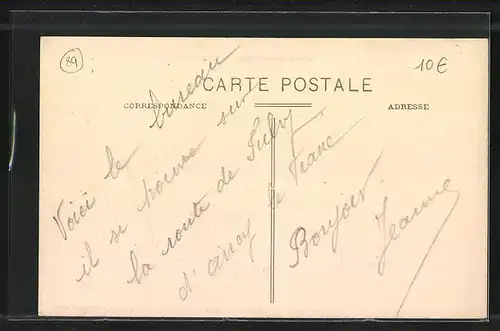 89
10€
CARTE POSTALE
CORRESPONDANCE
ADRESSE
Voici le bureau
il se trouve sur
la route de
d' le Franc
Bonjour
Jeanne